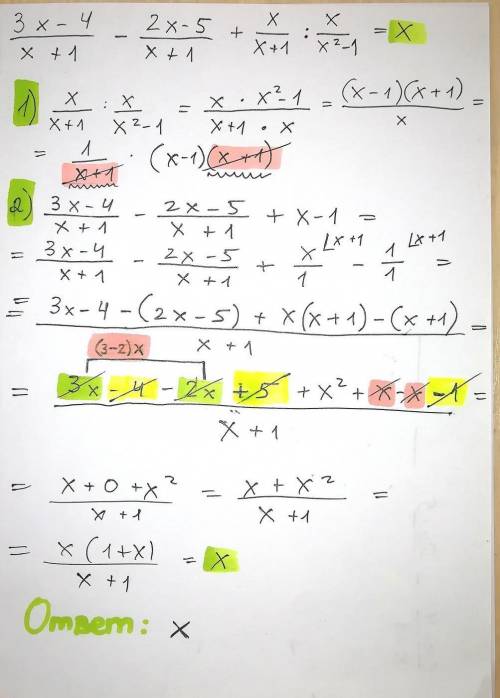 (3x-4)/(x+1) - (2x-5)/(x+1) + x/(x+1) : x/(x²-1) = x
1) x/(x+1) : x/(x²-1) = (x · x²-1)/(x+1 · x) = ((x-1)(x+1))/x =
= 1/(x+1) · (x-1)(x+1)
2) (3x-4)/(x+1) - (2x-5)/(x+1) + x-1 =
= (3x-4)/(x+1) - (2x-5)/(x+1) + x/1 ⌊x+1 - 1/1 ⌊x+1 =
= (3x-4-(2x-5)+x(x+1)-(x+1))/(x+1) =
(3-2)x
= (3x-4-2x+5+x²+x-x-1)/(x+1) =
= (x+0+x²)/(x+1) = (x+x²)/(x+1) =
= (x(1+x))/(x+1) = x
Ответ: x